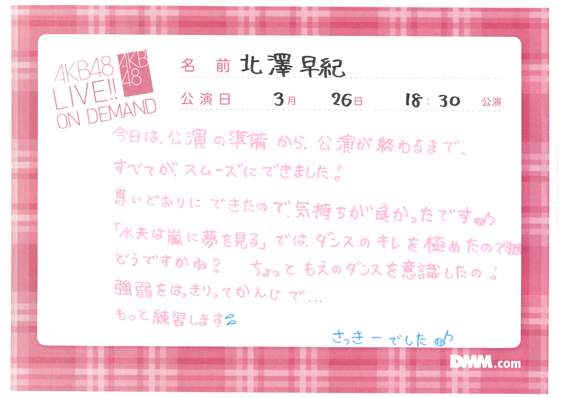 AKB48
LIVE!!
ON DEMAND
AKB
48
名 前 北澤早紀
公演日 3月 26日 18:30 公演
今日は、公演の準備から、公演が終わるまで、
すべてが、スムーズにできました!
思いどおりにできたので、気持ちが良かったです
「水夫は嵐に夢を見る」では、ダンスのキレを極めたので
どうですかね? ちょっともえのダンスを意識したの!
強弱をはっきりってかんじで...
もっと練習します
さっきーでした
DMM.com